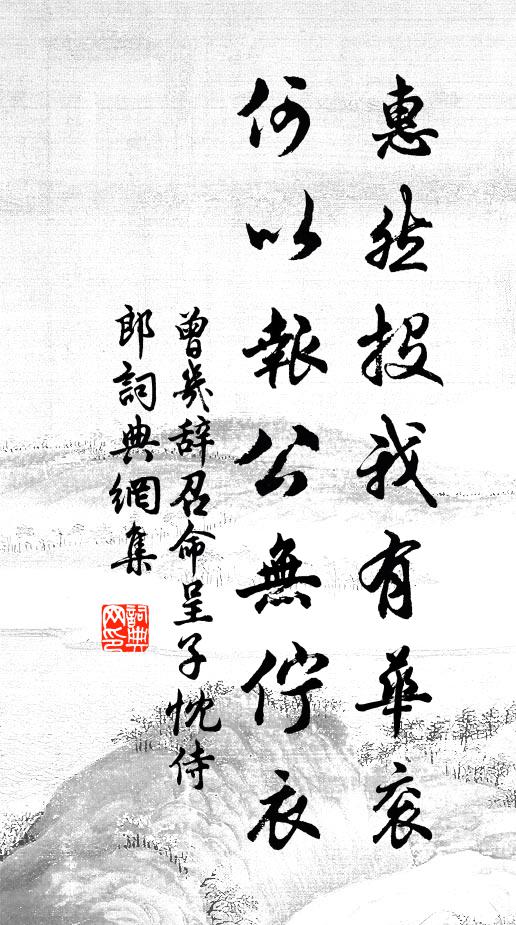 惠然投我有華衮
何以報公無佇衣
曾幾辞召命呈子忱侍
郎詞典網集
詞典網印